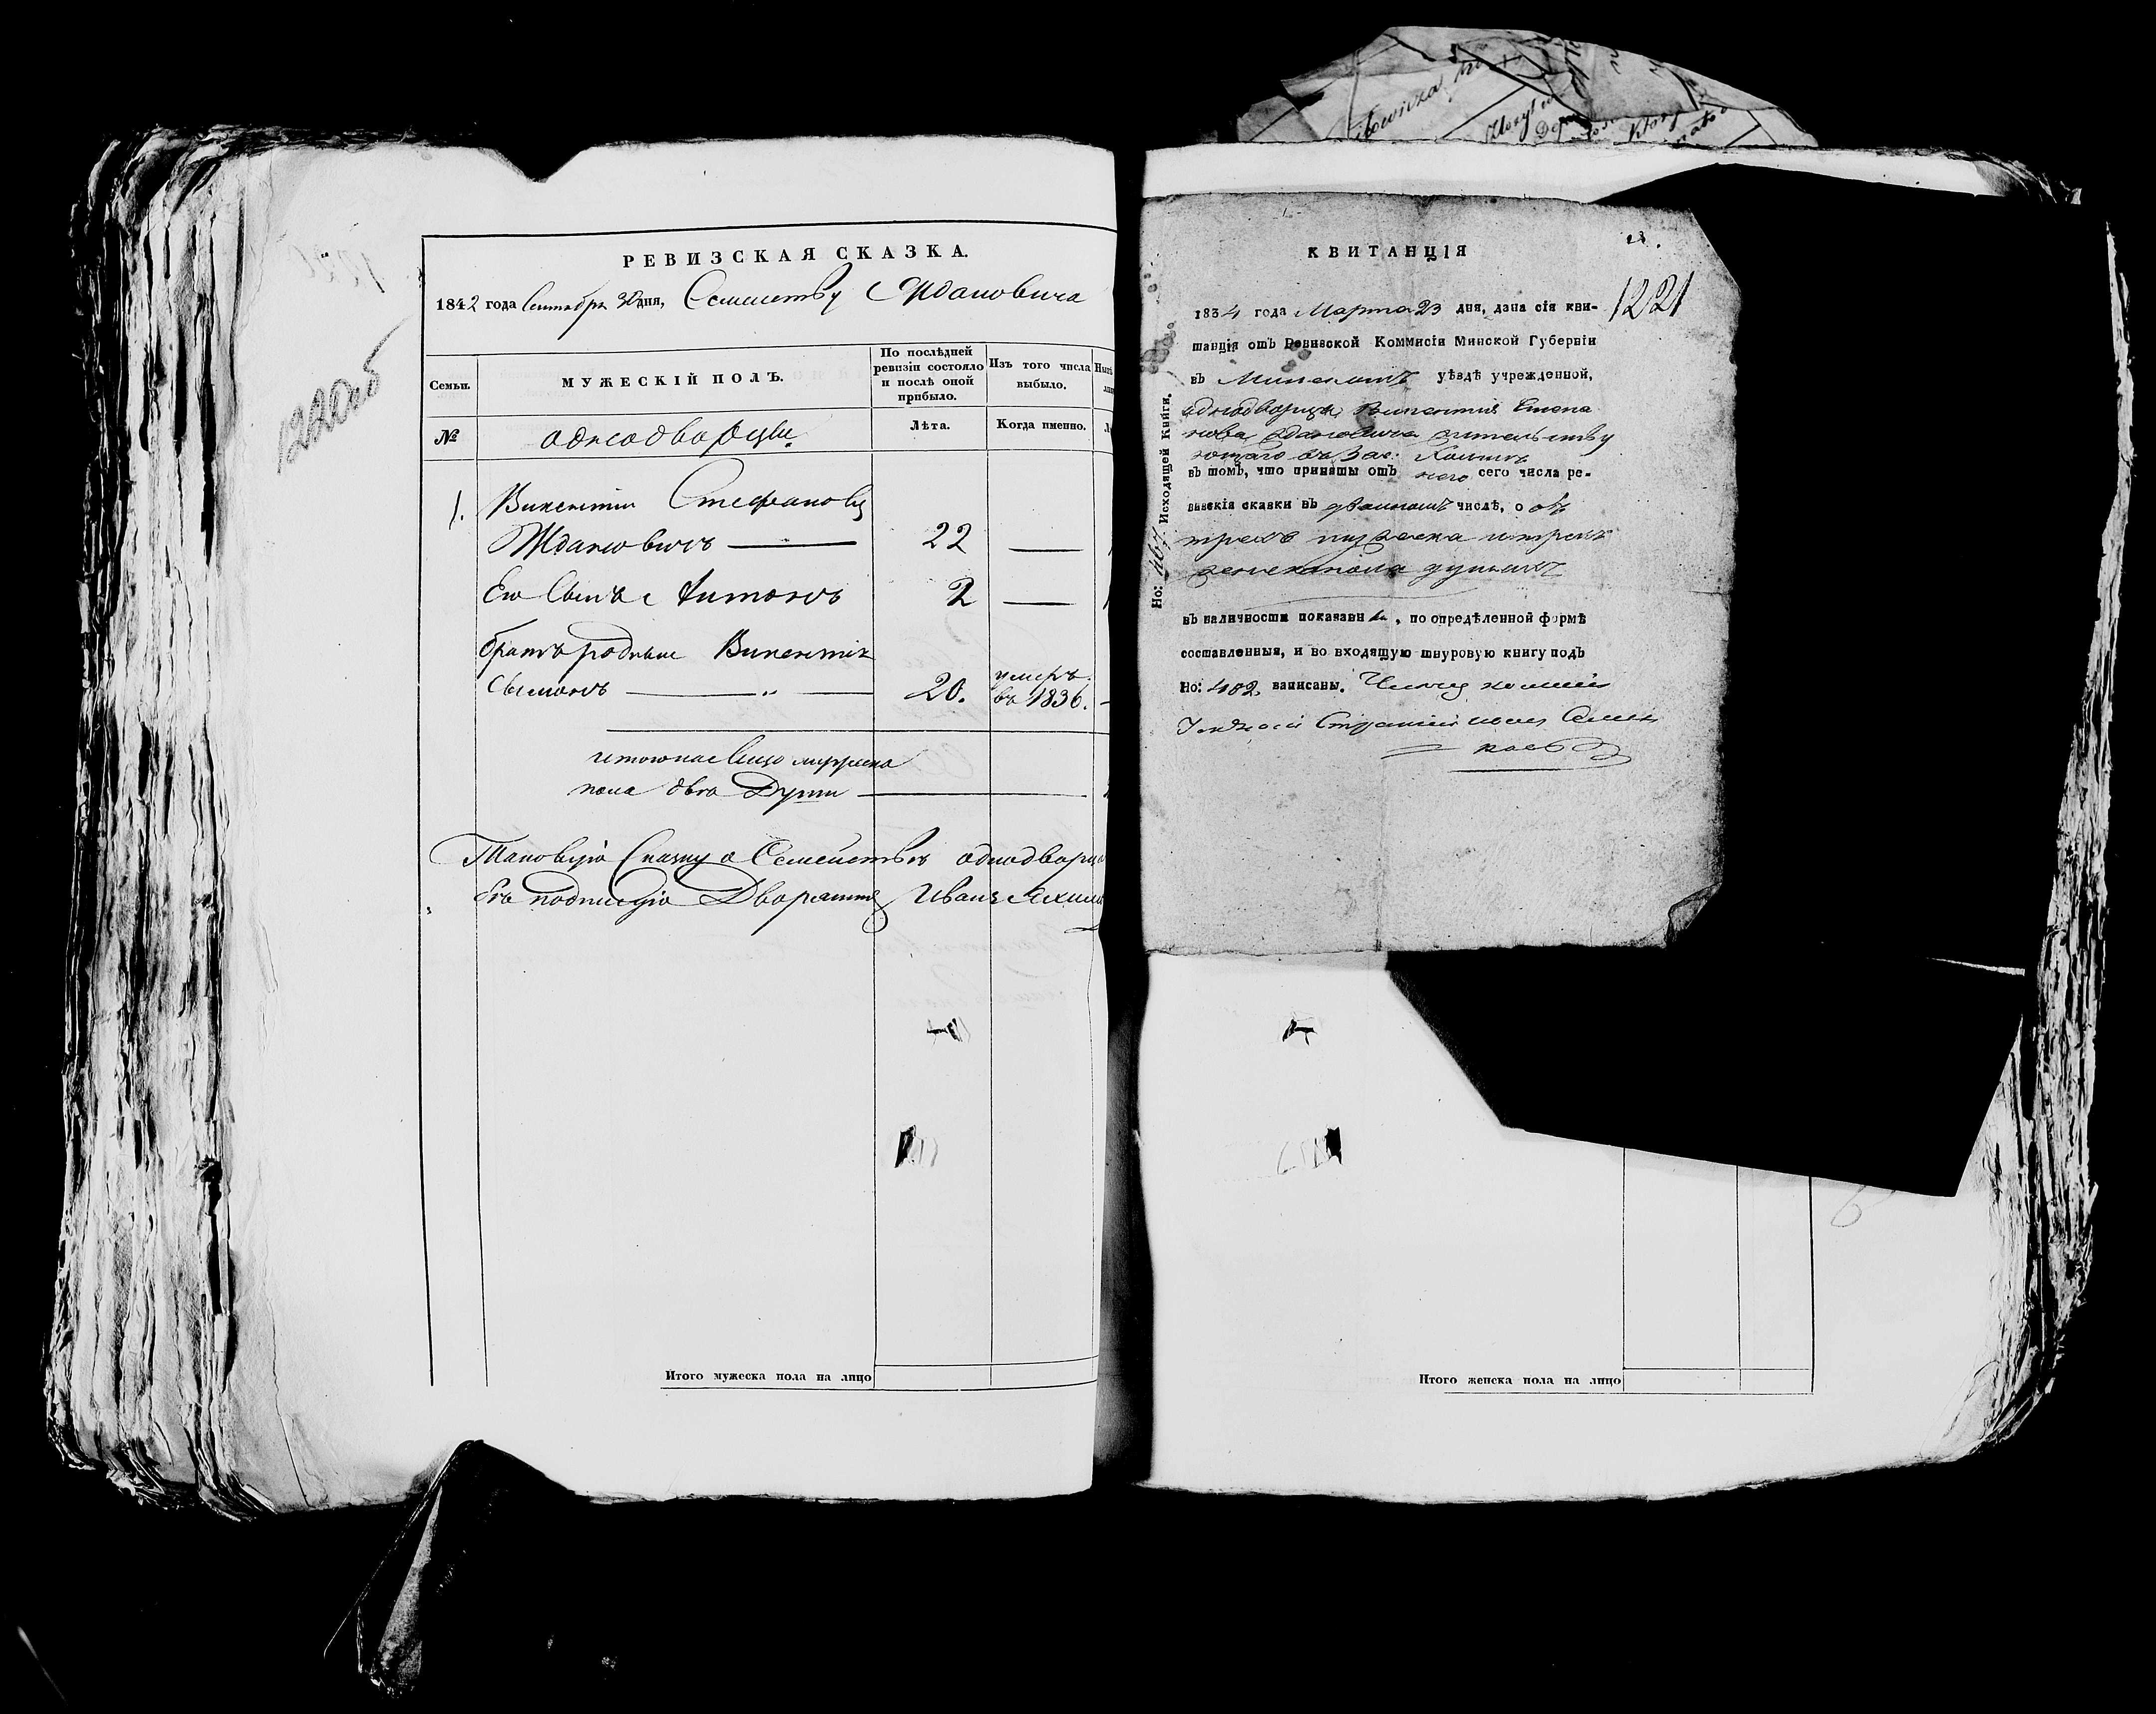 1220об
РЕВИЗСКАЯ СКАЗКА.
1842 года Сентября 30 дня, Семейству Ждановича
Семьи.
МУЖЕСКІЙ ПОЛЪ.
По послѣдней
ревизіи состояло
и послѣ оной
прибыло.
Изъ того числа
выбыло.
№
однодворцы
Лѣта.
Когда именно.
1. Викентій Стефановъ
Ждановичъ 22
Его Сынъ Антонъ 2
братъ родный Викентія
Сымонъ 20. умеръ
въ 1836.
итого на лицо мужеска
пола два Души
Таковую Сказку о Семействѣ однодворца
подписую Дворянинъ Иванъ
Итого мужеска пола на лицо
КВИТАНЦІЯ
1221
1834 года Марта 23 дня, дана сія кви-
танція отъ Ревизской Коммисіи Минской Губерніи
въ Минскомъ уѣздѣ учрежденной,
однодворцу Викентію Степа
нову Ждановичу жительству
ющаго въ Зас:
въ томъ, что приняты отъ него сего числа ре-
визскія сказки въ двойномъ числѣ, о
трехъ мужеска и трехъ
женска пола душахъ
въ наличности показанны, по опредѣленной формѣ
составленныя, и во входящую шнуровую книгу подъ
Но: 482 записаны. Членъ
Но: Исходящей Книги.
Итого женска пола на лицо